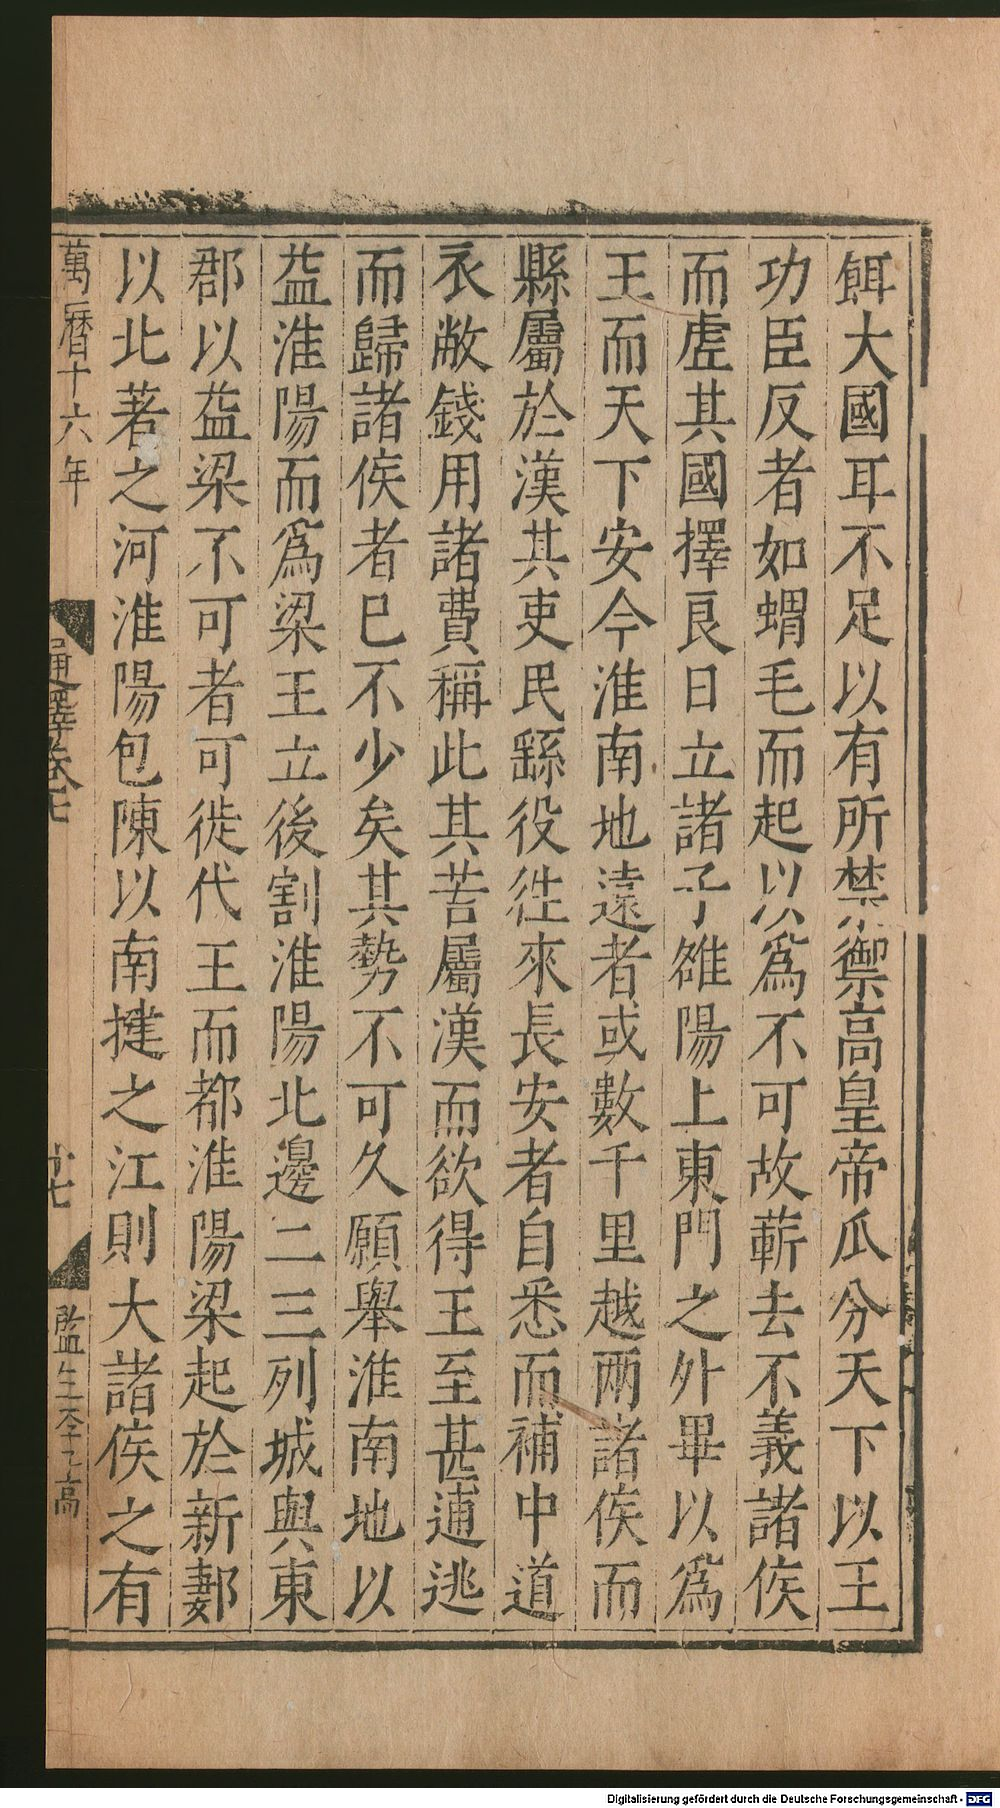 餌大國耳不足以有所禁禦高皇帝瓜分天下以王
功臣反者如蝟毛而起以爲不可故蕲去不義諸侯
而虛其國擇良日立諸子雒陽上東門之外畢以爲
王而天下安今淮南地遠者或數千里越兩諸侯而
縣屬於漢其吏民繇役徃來長安者自悉而補中道
衣敝錢用諸費稱此其苦屬漢而欲得王至甚逋逃
而歸諸侯者已不少矣其勢不可久願舉淮南地以
益淮陽而爲梁王立後割淮陽北邊二三列城與東
郡以益梁不可者可徙代王而都淮陽梁起於新郪
以北著之河淮陽包陳以南揵之江則大諸侯之有
萬曆十六年
通釋卷七
廿七
監生李 高
Digitalisierung gefördert durch die Deutsche Forschungsgemeinschaft - DFG